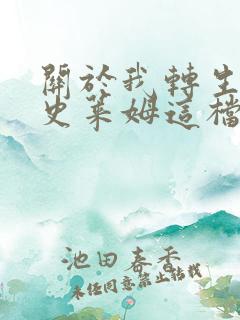 關於我轉生
史萊姆這檔
池田春香
未經同意禁止轉載